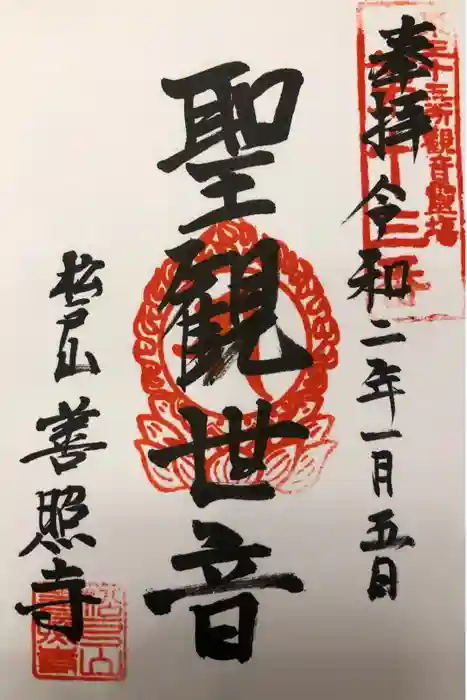 奉拝
令和二年一月五日
三十三所観音霊場
聖観世音
松戸山
善照寺